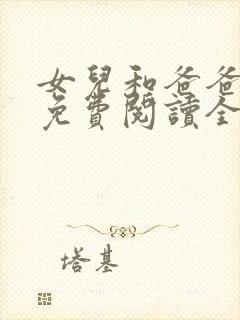 女兒和爸爸
免費閱讀全
塔基